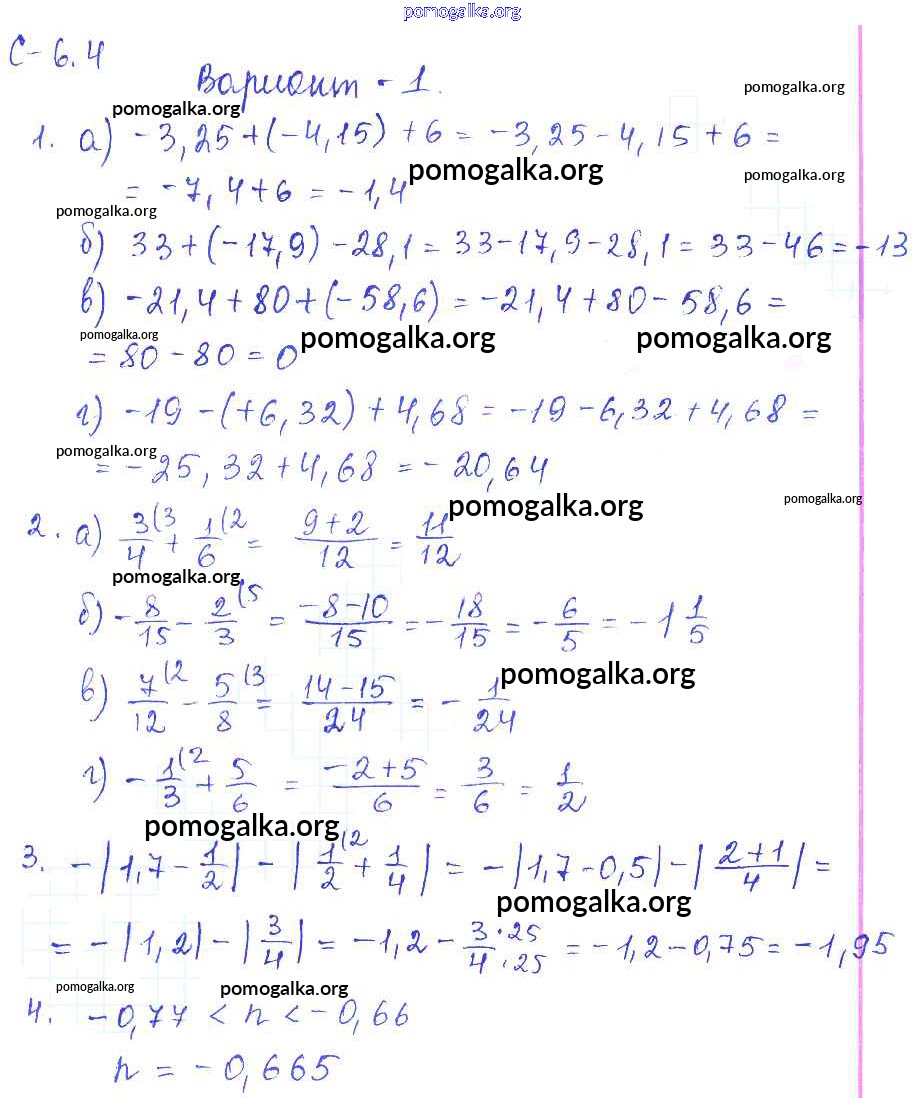 pomogalka.org
С-6.4
Вариант - 1.
pomogalka.org pomogalka.org
1. а) -3,25+(-4,15)+6 = -3,25-4,15+6 =
pomogalka.org pomogalka.org
= -7,4+6 = -1,4
pomogalka.org
б) 33+(-17,9)-28,1 = 33-17,9-28,1 = 33-46 = -13
в) -21,4+80+(-58,6) = -21,4+80-58,6 =
pomogalka.org pomogalka.org pomogalka.org
= 80-80 = 0
г) -19-(+6,32)+4,68 = -19-6,32+4,68 =
pomogalka.org
= -25,32+4,68 = -20,64
pomogalka.org pomogalka.org
2. а) 3/4 (3 + 1/6 (2 = (9+2)/12 = 11/12
pomogalka.org
б) -8/15 - 2/3 (5 = (-8-10)/15 = -18/15 = -6/5 = -1 1/5
pomogalka.org
в) 7/12 (2 - 5/8 (3 = (14-15)/24 = -1/24
г) -1/3 (2 + 5/6 = (-2+5)/6 = 3/6 = 1/2
pomogalka.org
3. -|1,7 - 1/2| - |1/2 (2 + 1/4| = -|1,7-0,5| - |(2+1)/4| =
pomogalka.org
= -|1,2| - |3/4| = -1,2 - 3·25/4·25 = -1,2-0,75 = -1,95
pomogalka.org pomogalka.org
4. -0,77 < n < -0,66
n = -0,665
pomogalka.org